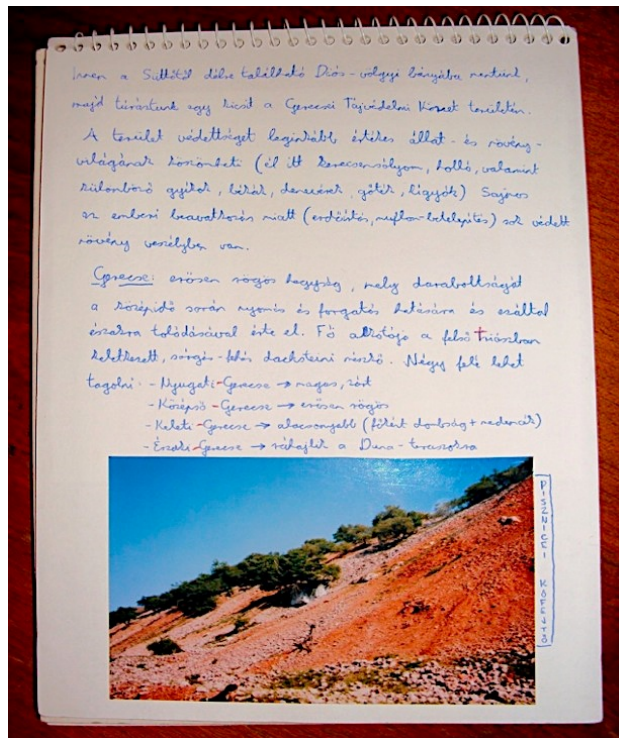 Innen a Süttőtől délre található Diós-völgyi bányába mentünk,
majd túráztunk egy kicsit a Gerecsei Tájvédelmi Körzet területén.
A terület védettséget leginkább értékes állat- és növény-
világának köszönheti (él itt kerecsensólyom, holló, valamint
különböző gyíkok, békák, denevérek, gőték, kígyók) Sajnos
az emberi beavatkozás miatt (erdőirtás, muflon-betelepítés) sok védett
növény veszélyben van.
Gerecse: erősen rögös hegység, mely daraboltságát
a középidő során nyomás és forgatás hatására és ezáltal
északra tolódásával érte el. Fő alkotója a felső triászban
keletkezett, sárgás-fehér dachsteini mészkő. Négy felé lehet
tagolni: - Nyugati-Gerecse → magas, zárt
- Középső-Gerecse → erősen rögös
- Keleti-Gerecse → alacsonyabb (főként dombság + medencék)
- Északi-Gerecse → ráhajlik a Duna-teraszokra
PISZNICEI KŐFEJTŐ